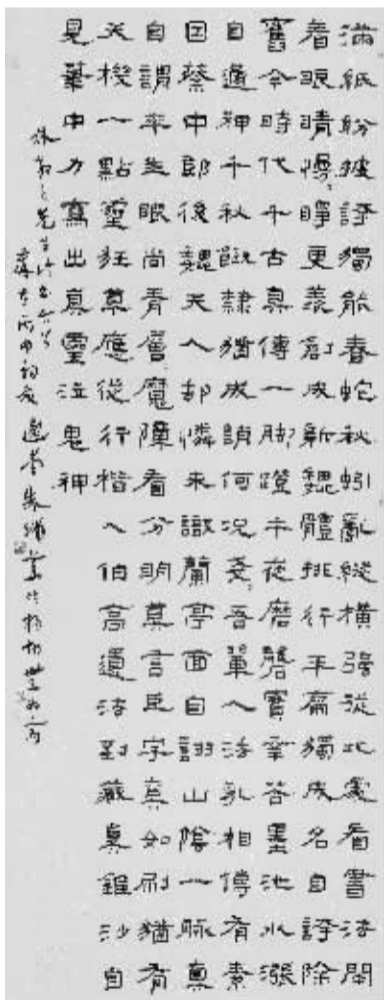 滿紙紛披評獨能春蛇秋蚓亂縱橫強從此處看書法閒
看眼睛慢慢睜更義創成新魏體排行平扁獨成名自誇除
舊今時代千古真傳一脚蹬半夜磨礱寶幸答墨池水漲
自通神千秋隸猶成誚何況吾輩人法乳相傳有素
因蔡中郎後魏夫人却憐未識蘭亭面自詡山陰一脈真
自謂平生眼尚青層魔障看分明莫言臣字真如刷猶有
天機一點靈狂草應從行楷入伯高遺法對藏真錐沙自
見筆中力寫出真靈泣鬼神